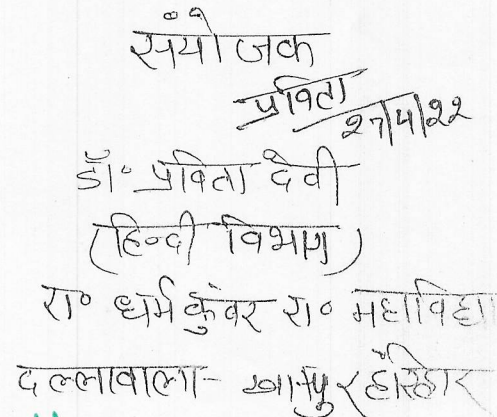 संयोजक
प्रविता
२७/४/२२
डॉ० प्रविता देवी
(हिन्दी विभाग)
रा० धर्म कुंवर रा० महाविद्या
दल्लावाला- खानपुर हरिद्वार